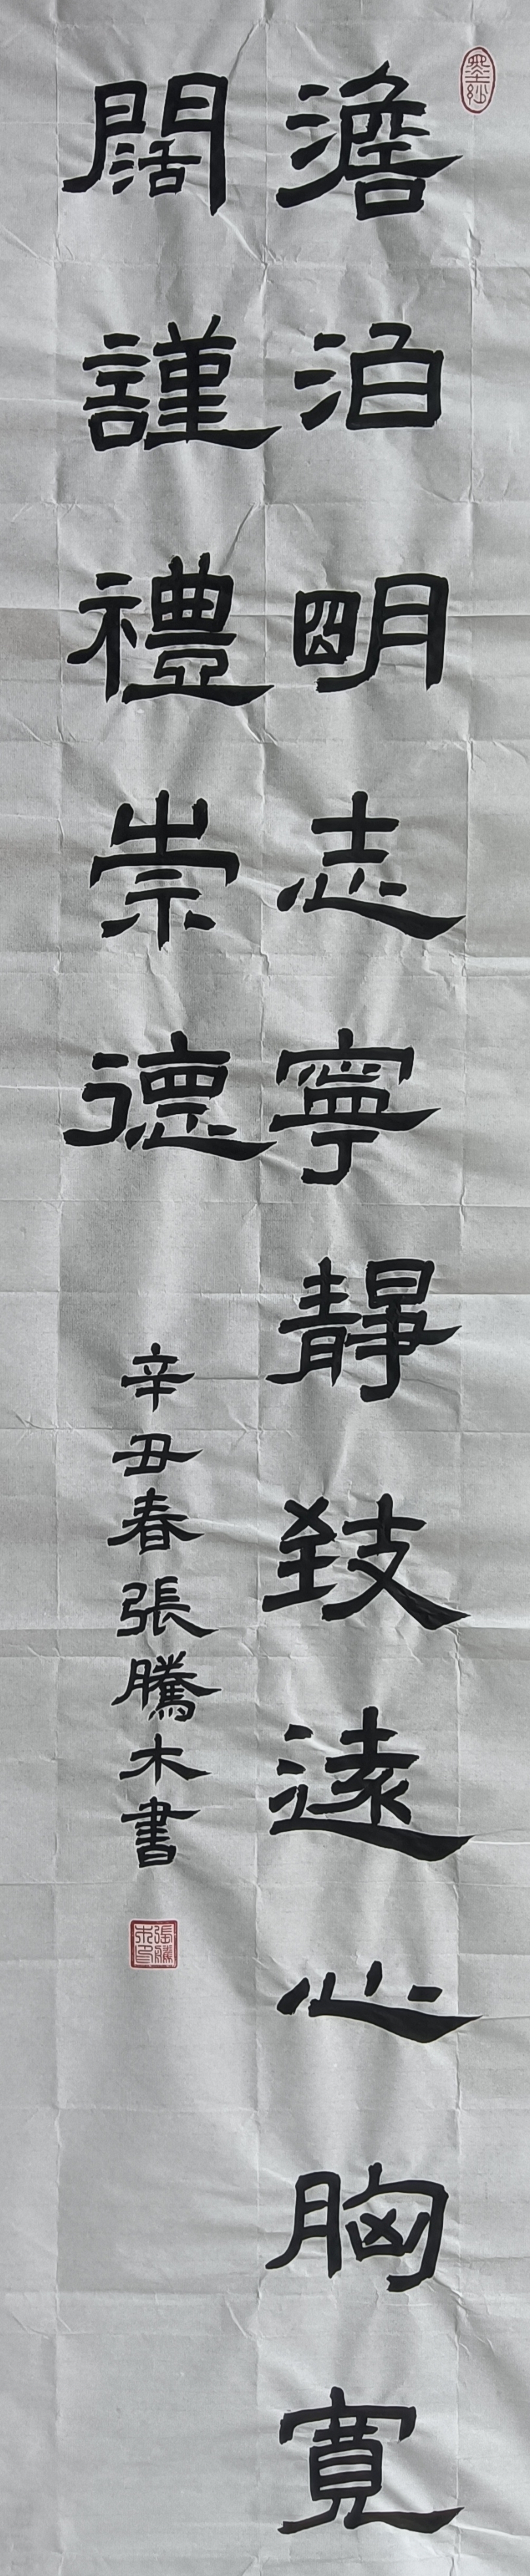 澹泊明志寧靜致遠心胸寬
闊謹禮崇德
辛丑春張騰木書